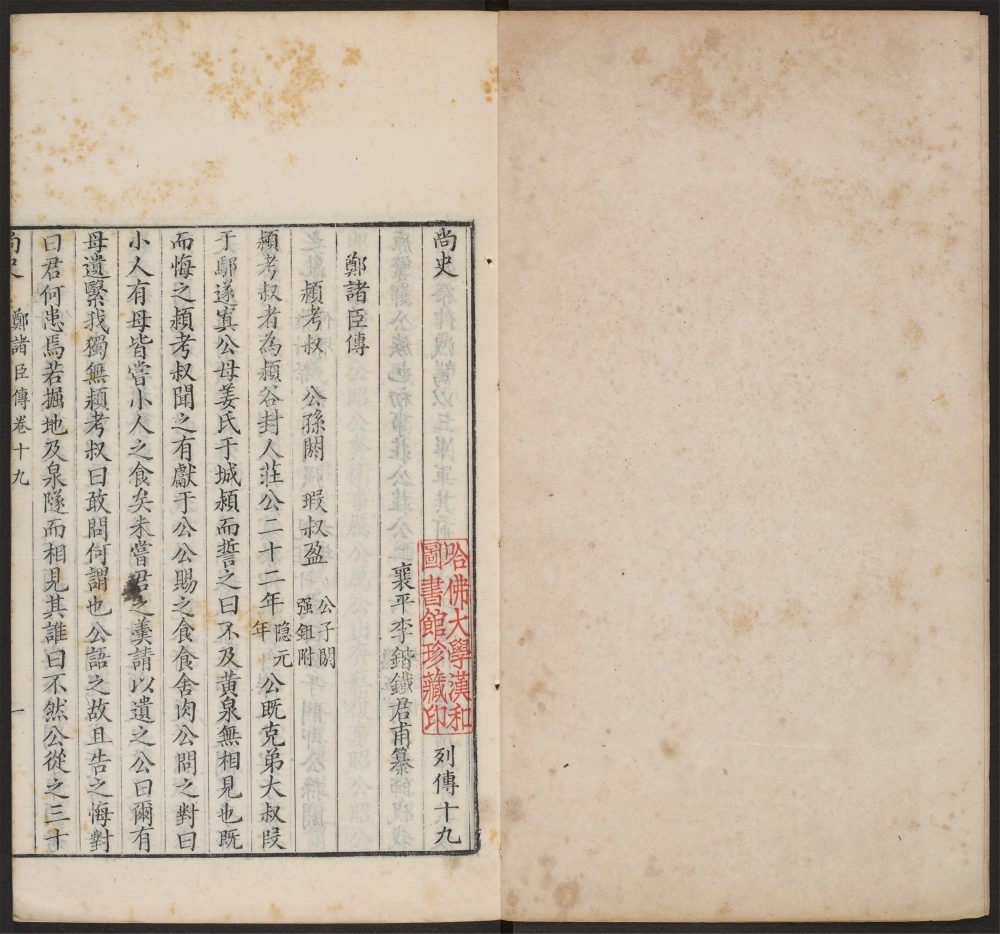 尚史
列傳十九
襄平李鍇鐵君甫纂
鄭諸臣傳
潁考叔　公孫閼　瑕叔盈　公子閼
强鉏附
潁考叔者為潁谷封人莊公二十二年隐元
年公既克弟大叔段
于鄢遂寘公母姜氏于城潁而誓之曰不及黄泉無相見也既
而悔之潁考叔聞之有獻于公公賜之食食舍肉公問之對曰
小人有母皆嘗小人之食矣未嘗君之羹請以遺之公曰爾有
母遺緊我獨無潁考叔曰敢問何謂也公語之故且告之悔對
曰君何患焉若掘地及泉隧而相見其誰曰不然公從之三十
尚史　鄭諸臣傳卷十九　一
哈佛大學漢和
圖書館珍藏印